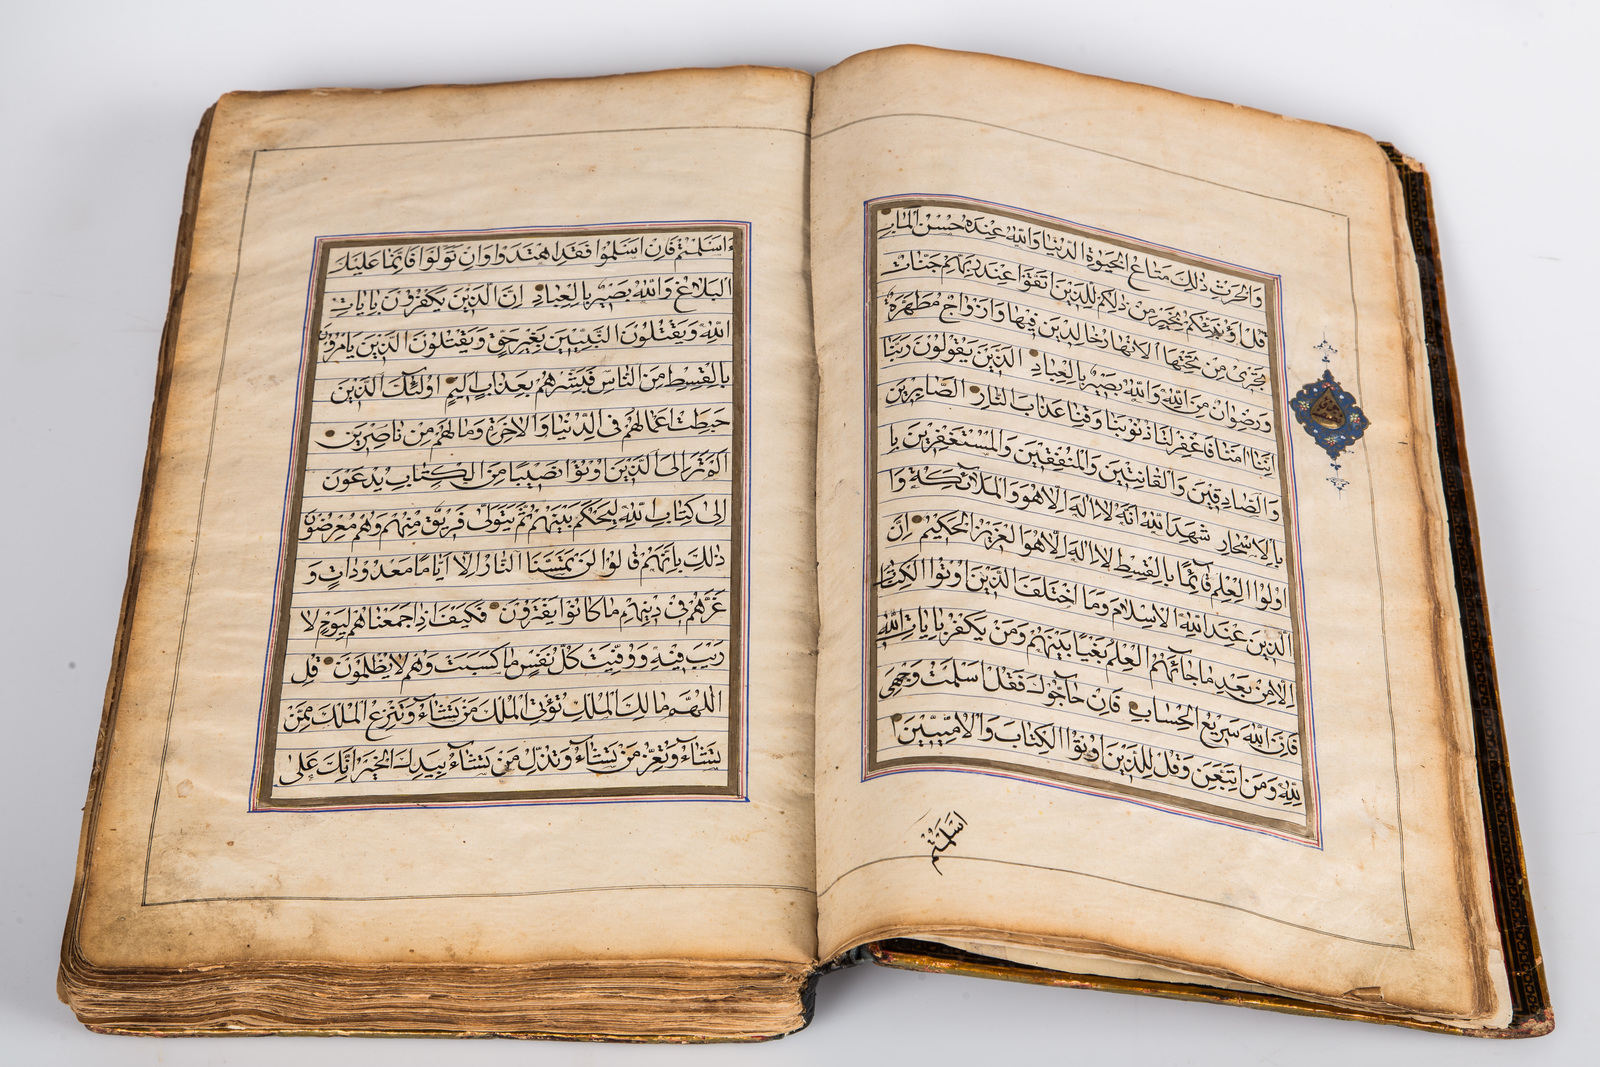 وَالْحَرْثِ ذٰلِكَ مَتَاعُ الْحَيٰوةِ الدُّنْيَا وَاللّٰهُ عِنْدَهُ حُسْنُ الْمَاٰبِ
قُلْ اَؤُنَبِّئُكُمْ بِخَيْرٍ مِنْ ذٰلِكُمْ لِلَّذِينَ اتَّقَوْا عِنْدَ رَبِّهِمْ جَنَّاتٌ
تَجْرِى مِنْ تَحْتِهَا الْاَنْهَارُ خَالِدِينَ فِيهَا وَاَزْوَاجٌ مُطَهَّرَةٌ
وَرِضْوَانٌ مِنَ اللّٰهِ وَاللّٰهُ بَصِيرٌ بِالْعِبَادِ الَّذِينَ يَقُولُونَ رَبَّنَا
اِنَّنَا اٰمَنَّا فَاغْفِرْ لَنَا ذُنُوبَنَا وَقِنَا عَذَابَ النَّارِ الصَّابِرِينَ
وَالصَّادِقِينَ وَالْقَانِتِينَ وَالْمُنْفِقِينَ وَالْمُسْتَغْفِرِينَ بِا
بِالْاَسْحَارِ شَهِدَ اللّٰهُ اَنَّهُ لَا اِلٰهَ اِلَّا هُوَ وَالْمَلَائِكَةُ وَا
اُولُوا الْعِلْمِ قَائِمًا بِالْقِسْطِ لَا اِلٰهَ اِلَّا هُوَ الْعَزِيزُ الْحَكِيمُ اِنَّ
الدِّينَ عِنْدَ اللّٰهِ الْاِسْلَامُ وَمَا اخْتَلَفَ الَّذِينَ اُوتُوا الْكِتَابَ
اِلَّا مِنْ بَعْدِ مَا جَائَهُمُ الْعِلْمُ بَغْيًا بَيْنَهُمْ وَمَنْ يَكْفُرْ بِاٰيَاتِ اللّٰهِ
فَاِنَّ اللّٰهَ سَرِيعُ الْحِسَابِ فَاِنْ حَاجُّوكَ فَقُلْ اَسْلَمْتُ وَجْهِىَ
لِلّٰهِ وَمَنِ اتَّبَعَنِ وَقُلْ لِلَّذِينَ اُوتُوا الْكِتَابَ وَالْاُمِّيِّينَ
اَسْلَمْتُمْ
ءَاَسْلَمْتُمْ فَاِنْ اَسْلَمُوا فَقَدِ اهْتَدَوْا وَاِنْ تَوَلَّوْا فَاِنَّمَا عَلَيْكَ
الْبَلَاغُ وَاللّٰهُ بَصِيرٌ بِالْعِبَادِ اِنَّ الَّذِينَ يَكْفُرُونَ بِاٰيَاتِ
اللّٰهِ وَيَقْتُلُونَ النَّبِيِّينَ بِغَيْرِ حَقٍّ وَيَقْتُلُونَ الَّذِينَ يَاْمُرُونَ
بِالْقِسْطِ مِنَ النَّاسِ فَبَشِّرْهُمْ بِعَذَابٍ اَلِيمٍ اُولٰئِكَ الَّذِينَ
حَبِطَتْ اَعْمَالُهُمْ فِى الدُّنْيَا وَالْاٰخِرَةِ وَمَا لَهُمْ مِنْ نَاصِرِينَ
اَلَمْ تَرَ اِلَى الَّذِينَ اُوتُوا نَصِيبًا مِنَ الْكِتَابِ يُدْعَوْنَ
اِلٰى كِتَابِ اللّٰهِ لِيَحْكُمَ بَيْنَهُمْ ثُمَّ يَتَوَلّٰى فَرِيقٌ مِنْهُمْ وَهُمْ مُعْرِضُونَ
ذٰلِكَ بِاَنَّهُمْ قَالُوا لَنْ تَمَسَّنَا النَّارُ اِلَّا اَيَّامًا مَعْدُودَاتٍ وَ
غَرَّهُمْ فِى دِينِهِمْ مَا كَانُوا يَفْتَرُونَ فَكَيْفَ اِذَا جَمَعْنَاهُمْ لِيَوْمٍ لَا
رَيْبَ فِيهِ وَوُفِّيَتْ كُلُّ نَفْسٍ مَا كَسَبَتْ وَهُمْ لَا يُظْلَمُونَ قُلِ
اللّٰهُمَّ مَالِكَ الْمُلْكِ تُؤْتِى الْمُلْكَ مَنْ تَشَاءُ وَتَنْزِعُ الْمُلْكَ مِمَّنْ
تَشَاءُ وَتُعِزُّ مَنْ تَشَاءُ وَتُذِلُّ مَنْ تَشَاءُ بِيَدِكَ الْخَيْرُ اِنَّكَ عَلٰى